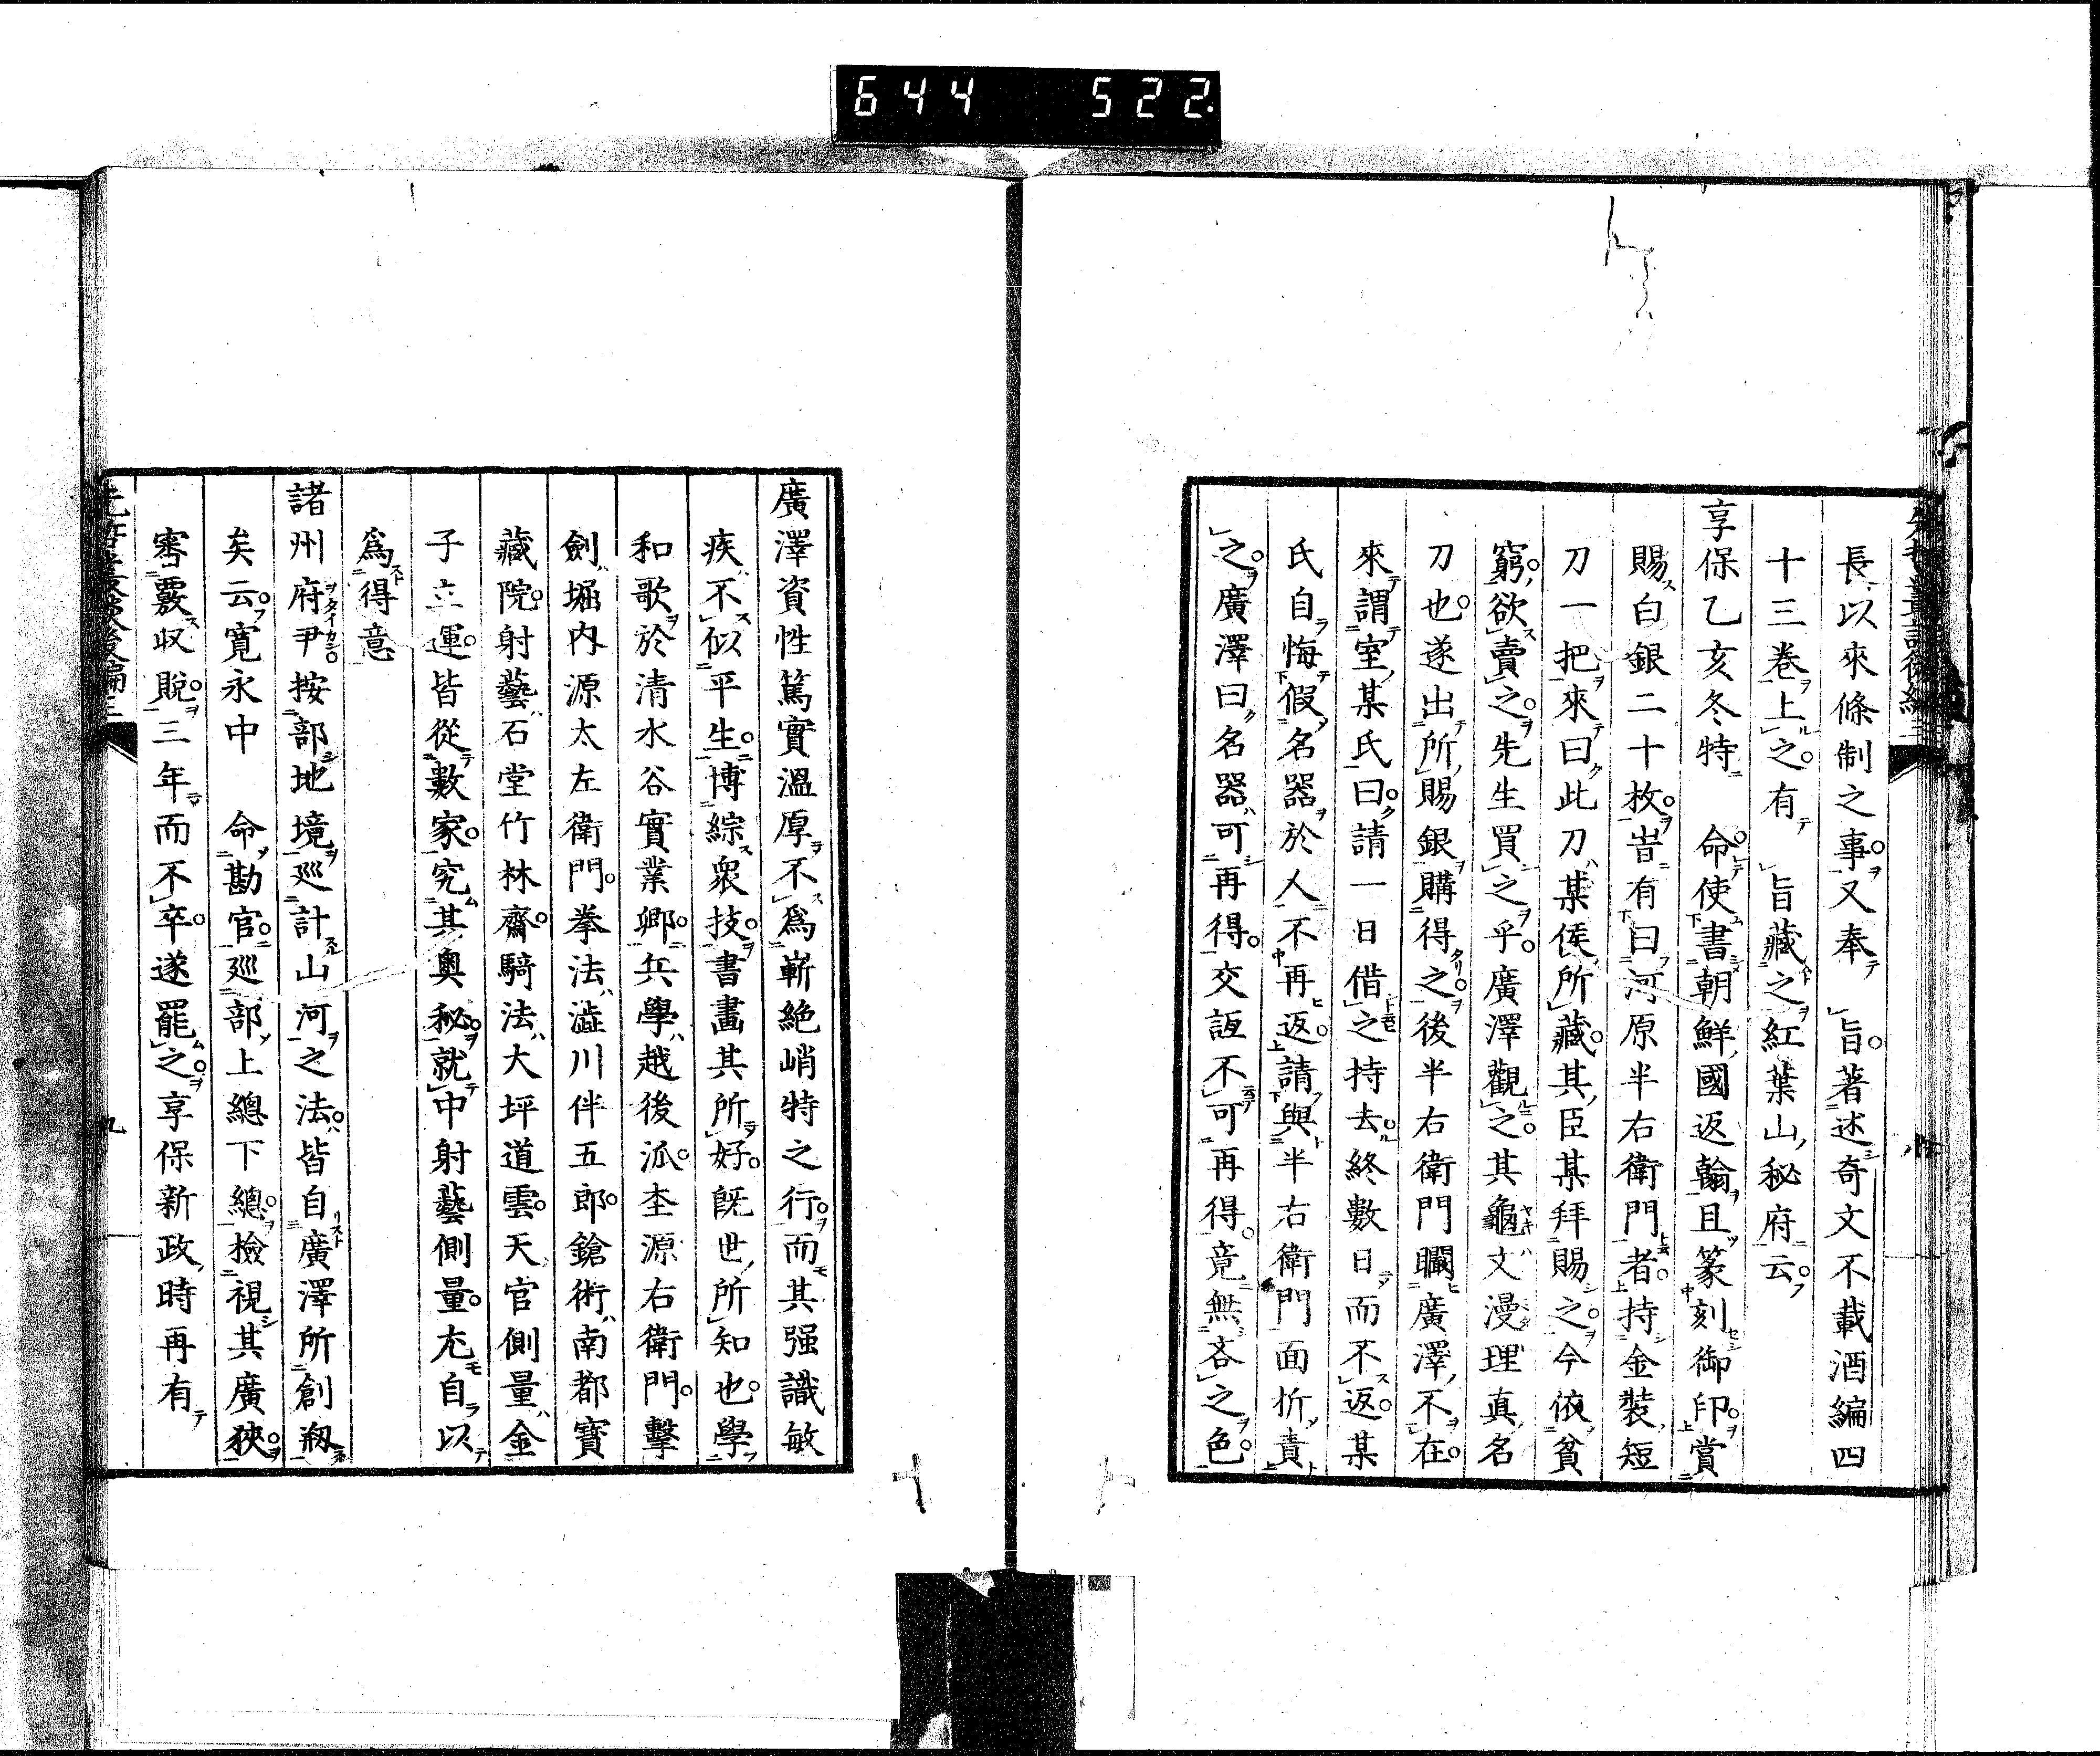 644 522
長以來條制之事又奉 旨著述奇文不載酒編四
十三卷上之有 旨藏之紅葉山秘府云
享保乙亥冬特 命使書朝鮮國返翰且篆刻御印賞
賜白銀二十枚時有曰河原半右衛門者持金裝短
刀一把來曰此刀某侯所藏其臣某拜賜之今依貧
窮欲賣之先生買之乎廣澤觀之其龜文漫理真名
刀也遂出所賜銀購得之後半右衛門矙廣澤不在
來謂室某氏曰請一日借之持去終數日而不返某
氏自悔假名器於人不再返請與半右衛門面折責
之廣澤曰名器可再得交誼不可再得竟無吝之色
廣澤資性篤實溫厚不爲嶄絶峭特之行而其强識敏
疾不似平生博綜衆技書畫其所好既世所知也學
和歌於清水谷實業卿兵學越後泒杢源右衛門擊
劍堀内源太左衛門拳法澁川伴五郎鎗術南都寳
藏院射藝石堂竹林齋騎法大坪道雲天官側量金
子立運皆從數家究其奧秘就中射藝側量尤自以
爲得意
諸州府尹按部地境巡計山河之法皆自廣澤所創剏
矣云寛永中 命勘官巡部上總下總撿視其廣狹
審覈収税三年而不卒遂罷之享保新政時再有
先哲叢談後編三
九